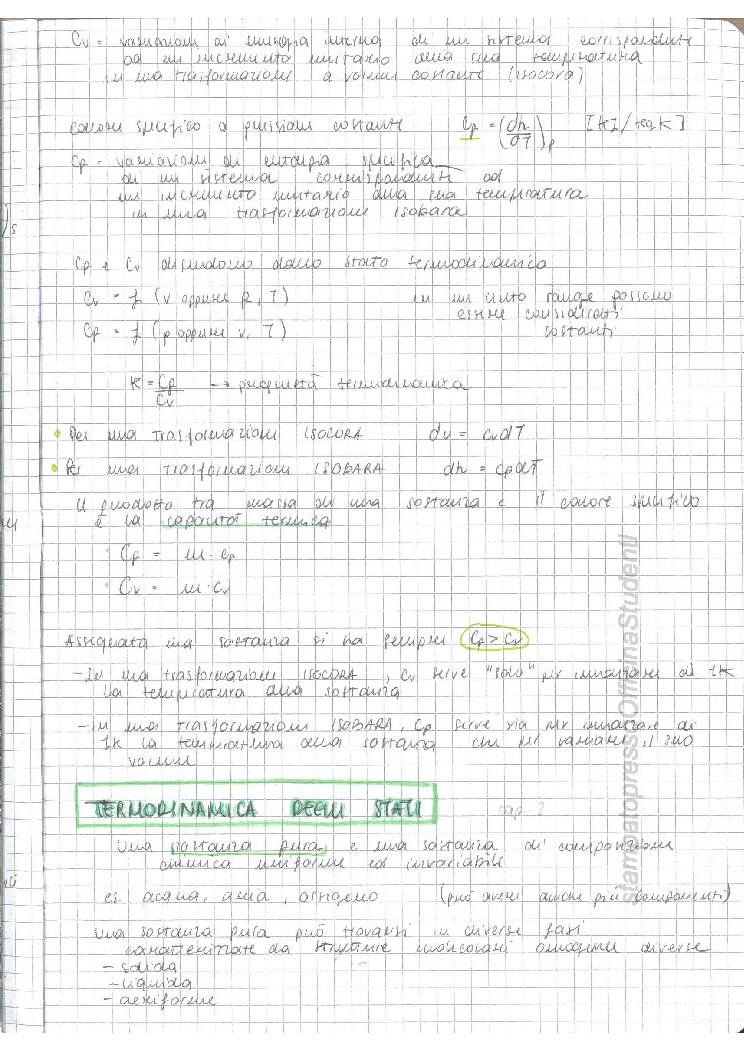 Cv = variazioni di energia interna di un sistema corrispondenti
ad un incremento unitario della sua temperatura
in una trasformazioni a volume costante (isocora)
calore specifico a pressioni costanti Cp = (dh/dT)p [kJ/kgK]
Cp = variazioni di entalpia specifica
di un sistema corrispondenti ad
un incremento unitario della sua temperatura
in una trasformazioni ISOBARA
Cp e Cv dipendono dallo stato termodinamico
Cv = f (v oppure p, T) in un certo range possono
essere considerati
Cp = f (p oppure v, T) costanti
K = Cp/Cv → proprietà termodinamica
• Per una trasformazioni ISOCORA du = cvdT
• Per una trasformazioni ISOBARA dh = cpdT
Il prodotto tra massa di una sostanza e il calore specifico
è la capacità termica
Cp = m · cp
Cv = m · cv
Assegnata una sostanza si ha sempre Cp > Cv
- In una trasformazioni ISOCORA, Cv serve "solo" per innalzare di 1K
la temperatura della sostanza
- in una trasformazioni ISOBARA, Cp serve sia per innalzare di
1K la temperatura della sostanza che per variare il suo
volume
TERMODINAMICA DEGLI STATI cap. 2
Una sostanza pura è una sostanza di composizione
chimica uniforme ed invariabili
es. acqua, aria, ossigeno (può avere anche più componenti)
Una sostanza pura può trovarsi in diverse fasi
caratterizzate da strutture molecolari omogenee diverse
- solida
- liquida
- aeriforme
stampatopressoOfficinaStudenti